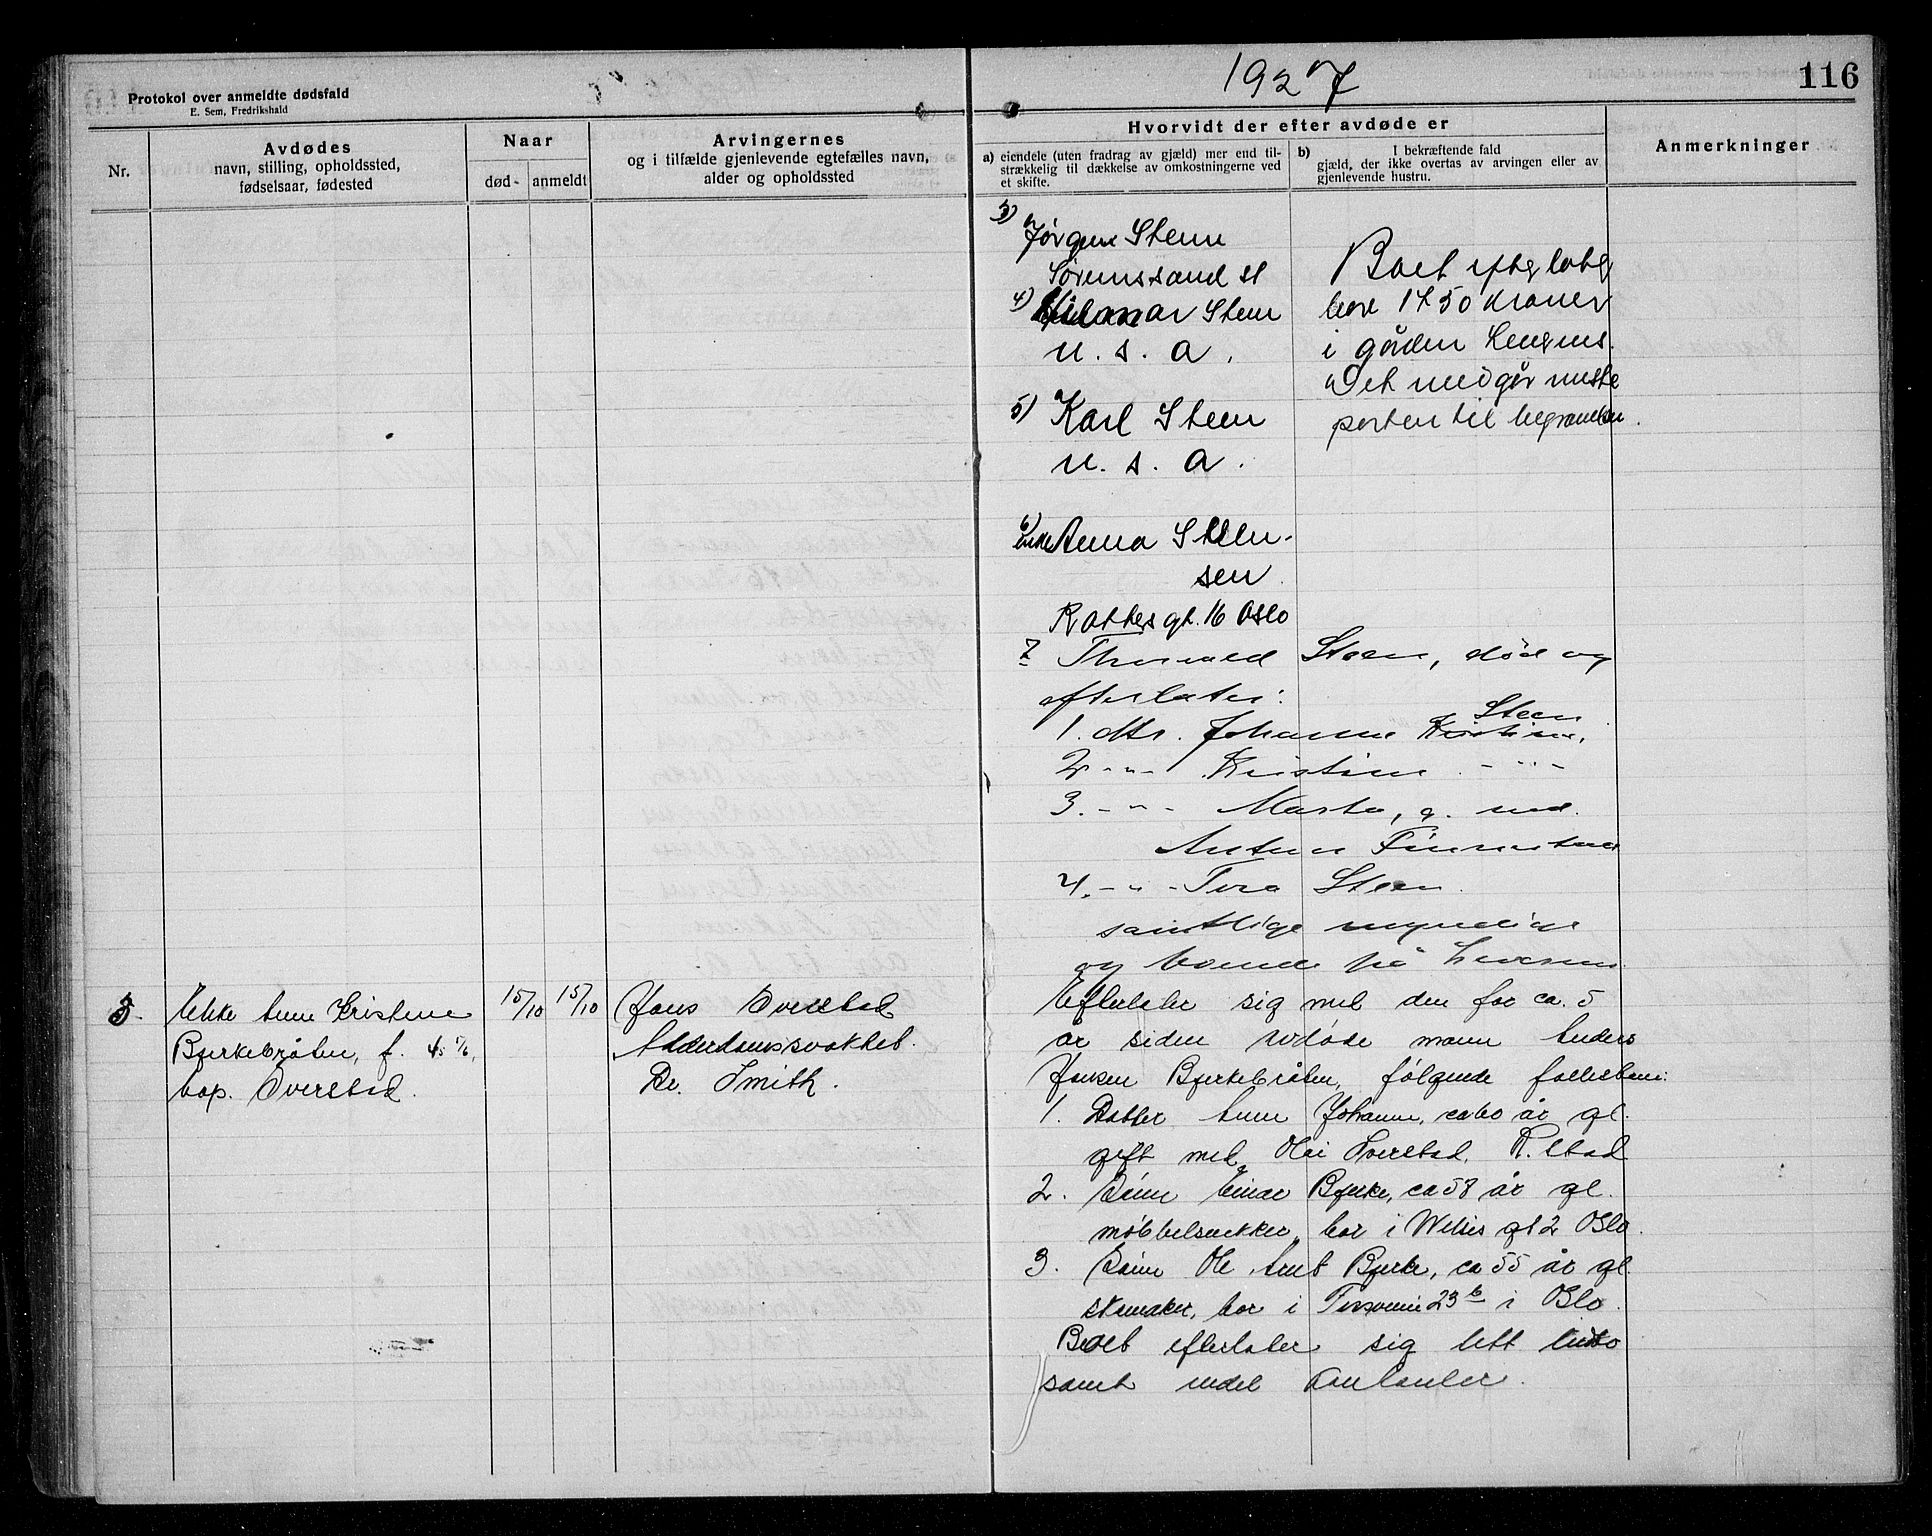 Protokol over anmeldte dødsfald
E. Sem, Fredrikshald
1927
116
Nr.
Avdødes
navn, stilling, opholdssted,
fødselsaar, fødested
Naar
død-
anmeldt
Arvingernes
og i tilfælde gjenlevende egtefælles navn,
alder og opholdssted
Hvorvidt der efter avdøde er
a) eiendele (uten fradrag av gjæld) mer end til-
strækkelig til dækkelse av omkostningerne ved
et skifte.
b) I bekræftende fald
gjæld, der ikke overtas av arvingen eller av
gjenlevende hustru.
Anmerkninger
3) Jørgen Steen
Sørumssand st
4) Hilmar Steen
U. S. A.
5) Karl Steen
U. S. A.
Boet efterlater
bare 1450 kroner
i gården
Det medgår meste
parten til begravelsen.
6) enke Anna Steen-
sen
gt. 16 Oslo
7 Thorvald Steen, død og
efterlater:
1. dtr. Johanne Steen
2 - " - Kristine - " -
3. - " - Marta, g. med
Anton
4. - " - Tora Steen.
samtlige myndige
og boende på
3.
Enke Anne Kristine
Bjerkebråten, f. 45
bop. Overstad.
15/10
15/10
Hans Overstad
Alderdomssvakhet.
Dr. Smith.
Efterlater sig med den for ca. 5
år siden avdøde mann Anders
Hansen Bjerkebråten, følgende fellesbarn:
1. Datter Anne Johanne, ca 60 år gl.
gift med Overstad,
2. Sønn Einar Bjerke, ca 58 år gl.
møbbelsnekker, bor i gt 2 Oslo.
3. Sønn Ole Bjerke, ca 55 år gl.
skomaker, bor i 23 b i Oslo.
Boet efterlater sig litt
samt endel